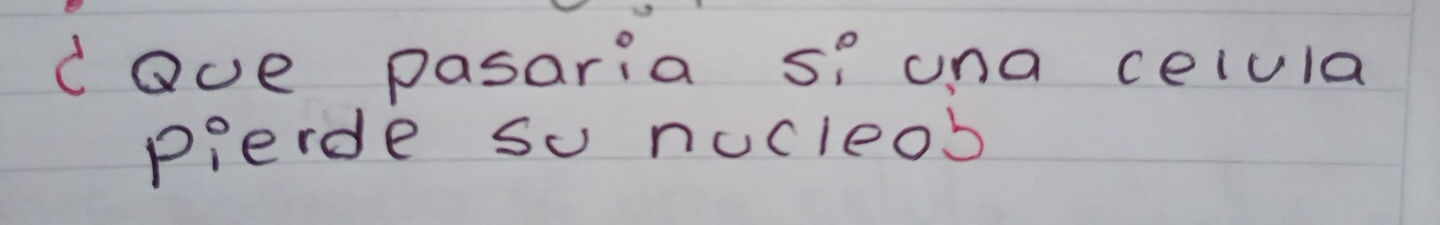 ¿ Que pasaria si una celula
pierde su nucleo?